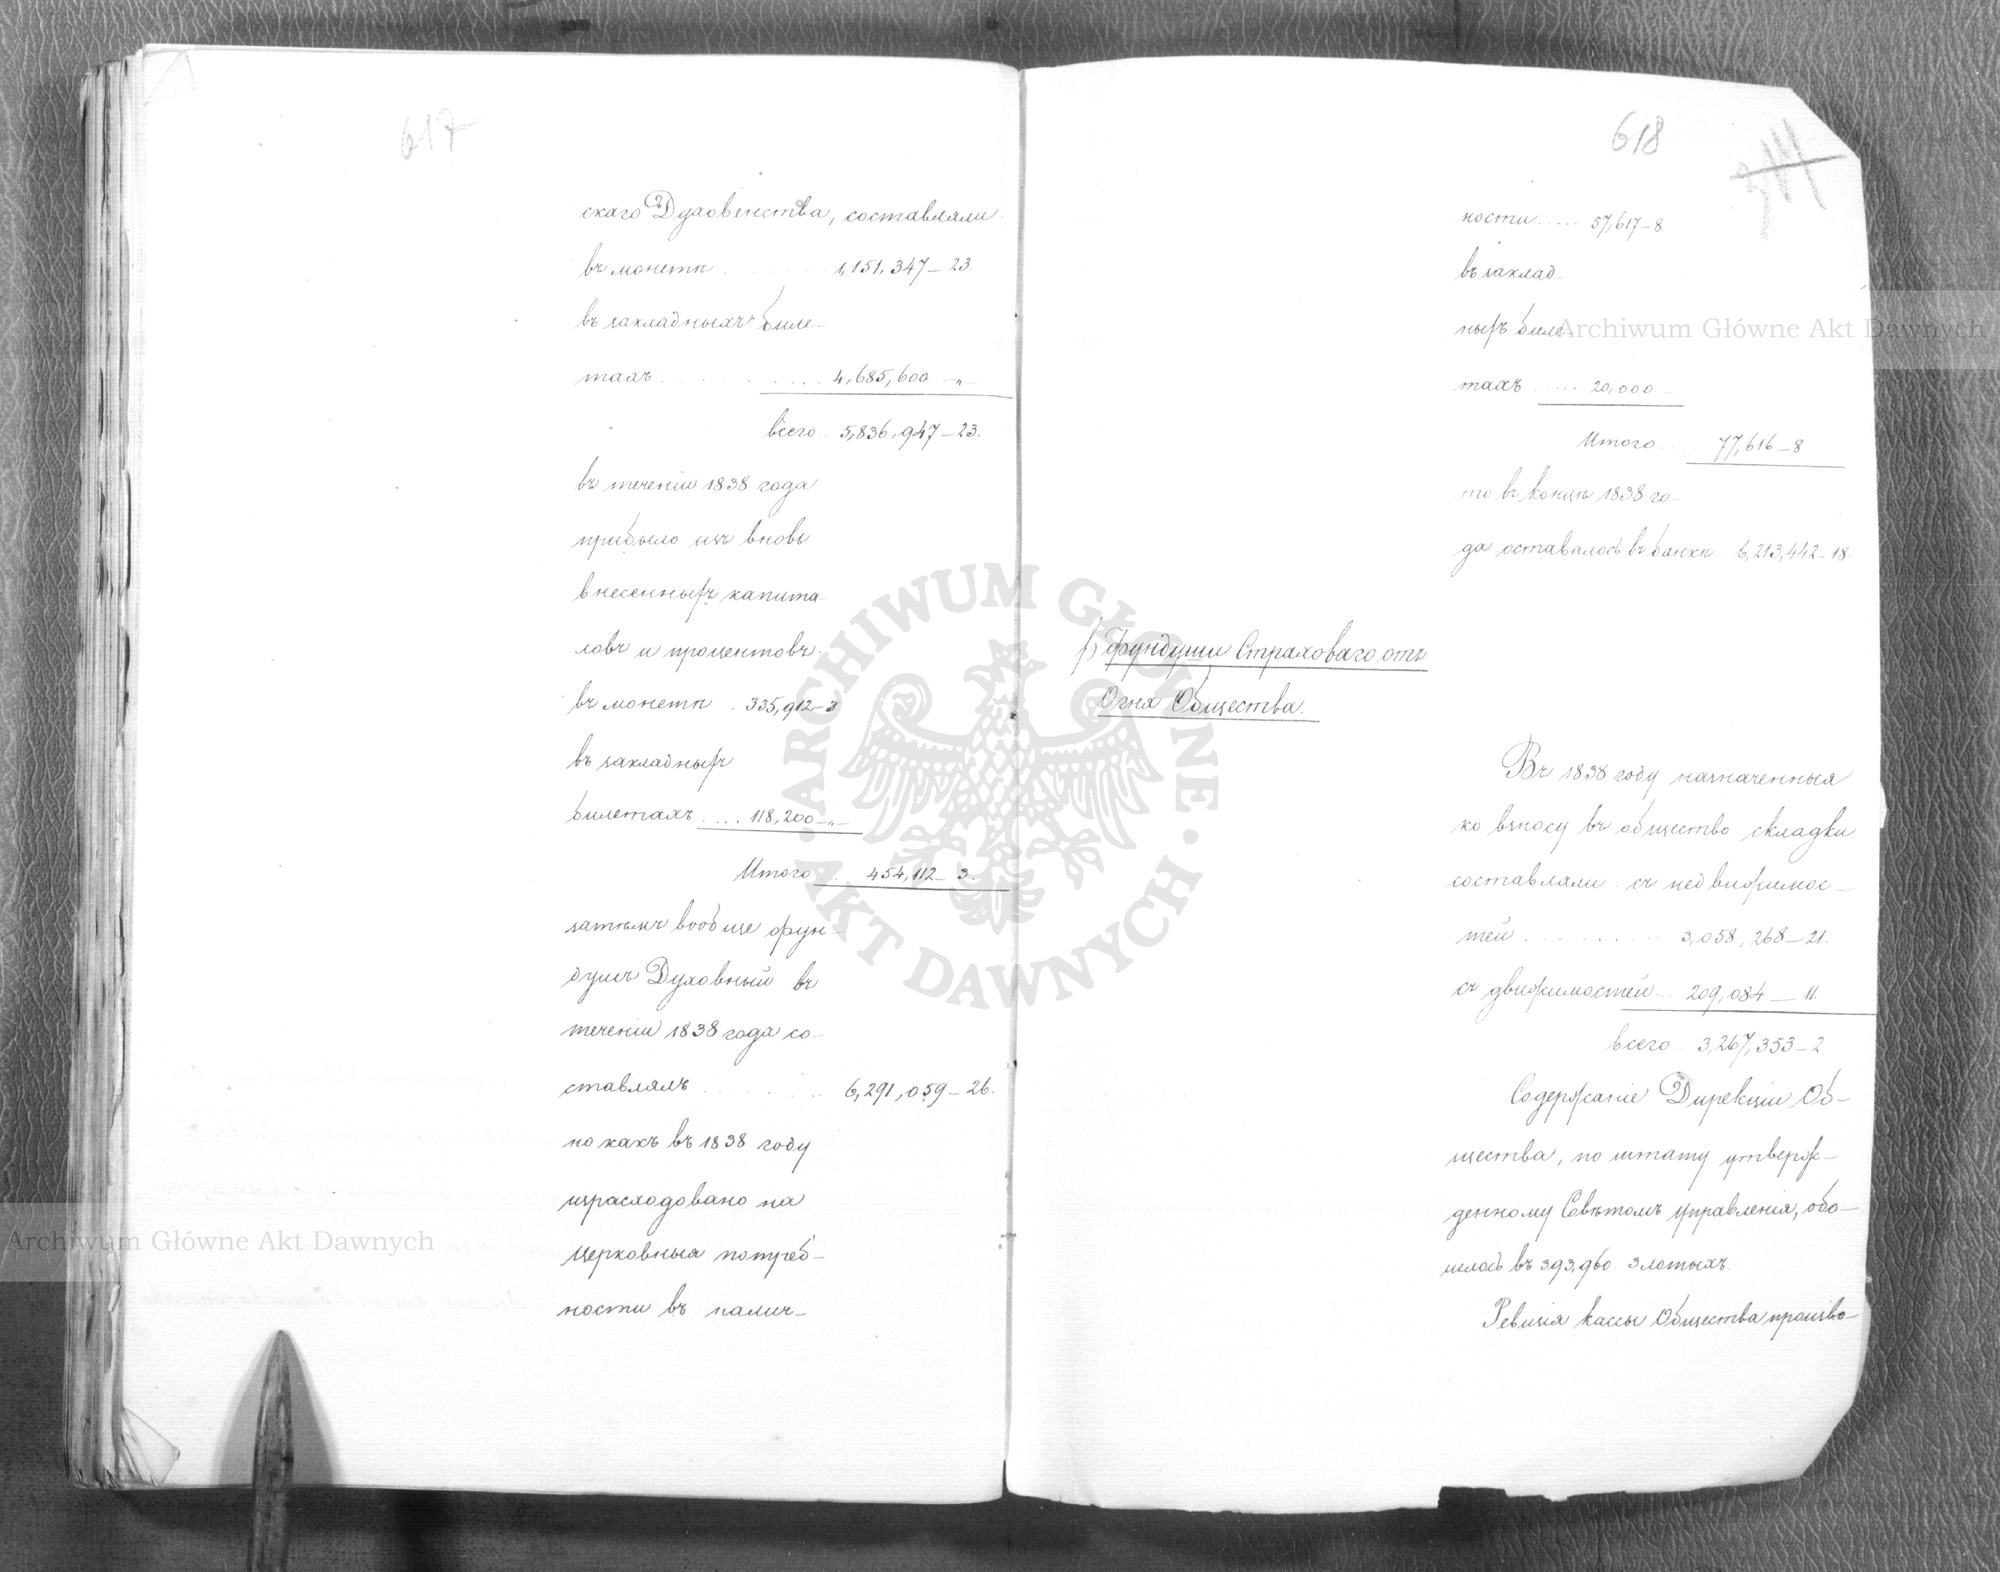 617
скаго Духовенства, составляли
въ монетѣ . . . . . . 1,151,347–23.
въ закладныхъ биле-
тахъ . . . . . . . . . 4,685,600 –„–
всего . . 5,836,947–23.
въ теченіи 1838 года
прибыло изъ вновь
внесенныхъ капита-
ловъ и процентовъ.
въ монетѣ . 335,912–3
въ закладныхъ
билетахъ . . . . 118,200–„–
Итого . . 454,112–3.
затѣмъ вообще фун-
душъ Духовный въ
теченіи 1838 года со-
ставлялъ . . . . . . . 6,291,059–26.
но какъ въ 1838 году
израсходовано на
церковныя потреб-
ности въ налич-
618
ности . . . . 57,617–8
въ заклад-
ныхъ биле-
тахъ . . . . . 20,000 –
Итого . . . . 77,616–8
то въ концѣ 1838 го-
да оставалось въ банкѣ 6,213,442–18.
f) Фундуши Страховаго отъ
Огня Общества.
Въ 1838 году назначенныя
ко взносу въ общество складки
составляли съ недвижимос-
тей . . . . . . . . . 3,058,268–21.
съ движимостей . . . 209,084–11.
всего . . 3,267,353–2
Содержаніе Дирекціи Об-
щества, по штату утверж-
денному Совѣтомъ Управленія, обо-
шлось въ 393,960 злотыхъ.
Ревизія кассы Общества произво-
ARCHIWUM GŁÓWNE AKT DAWNYCH
Archiwum Główne Akt Dawnych
Archiwum Główne Akt Dawnych